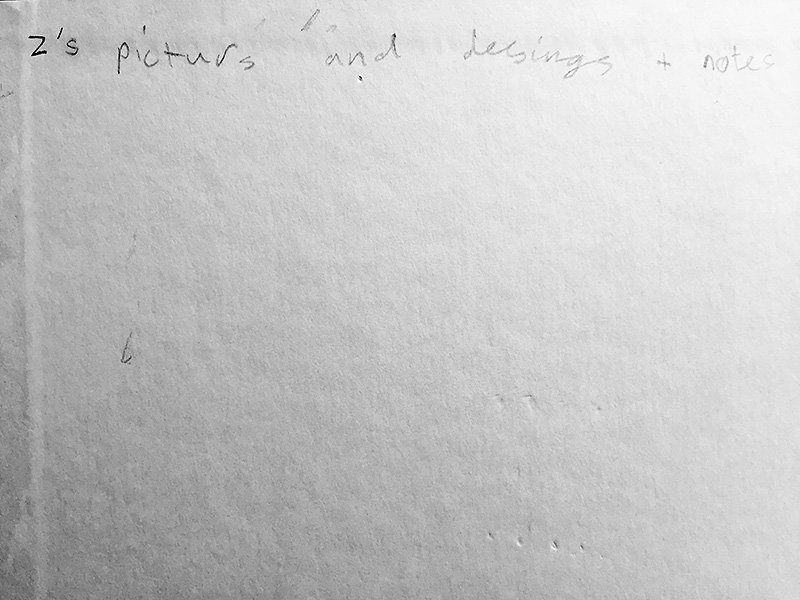 Z's picturs and deesings + notes